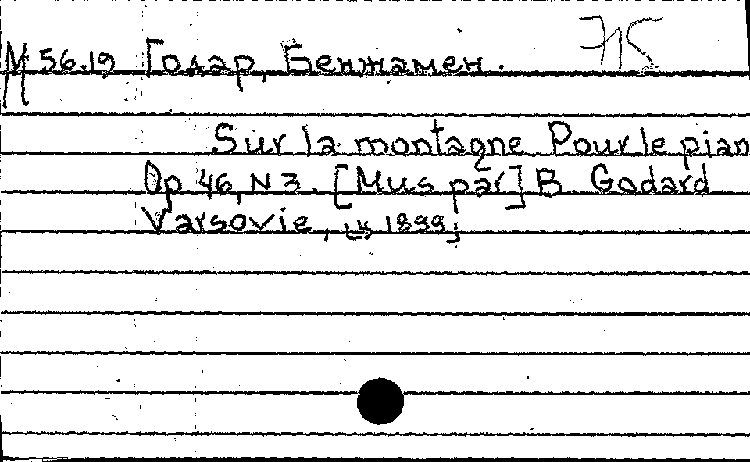 М 56.19 Годар, Бенжамен. 715
Sur la montagne Pour le pian
Op 46, N 3. [Mus par] B Godard
Varsovie, 1899